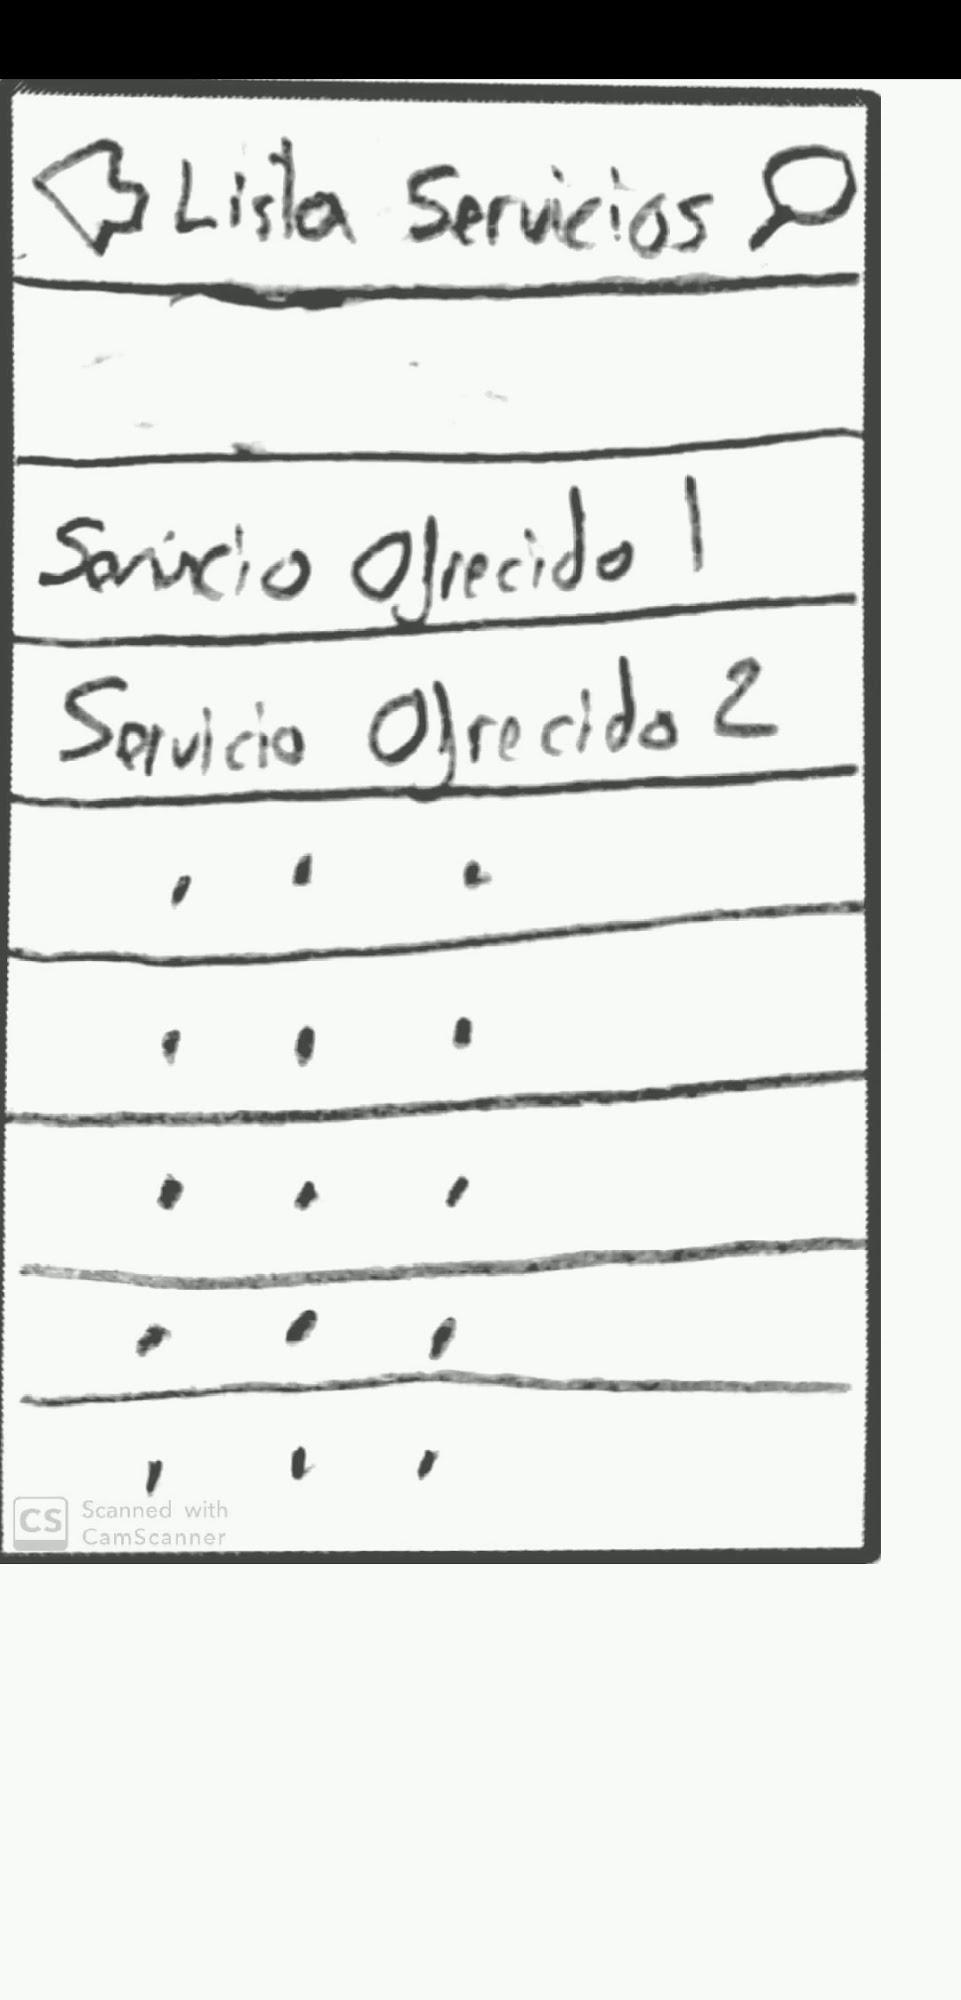 Lista Servicios
Servicio Ofrecido 1
Servicio Ofrecido 2
. . .
. . .
. . .
. . .
. . .
CS Scanned with
CamScanner